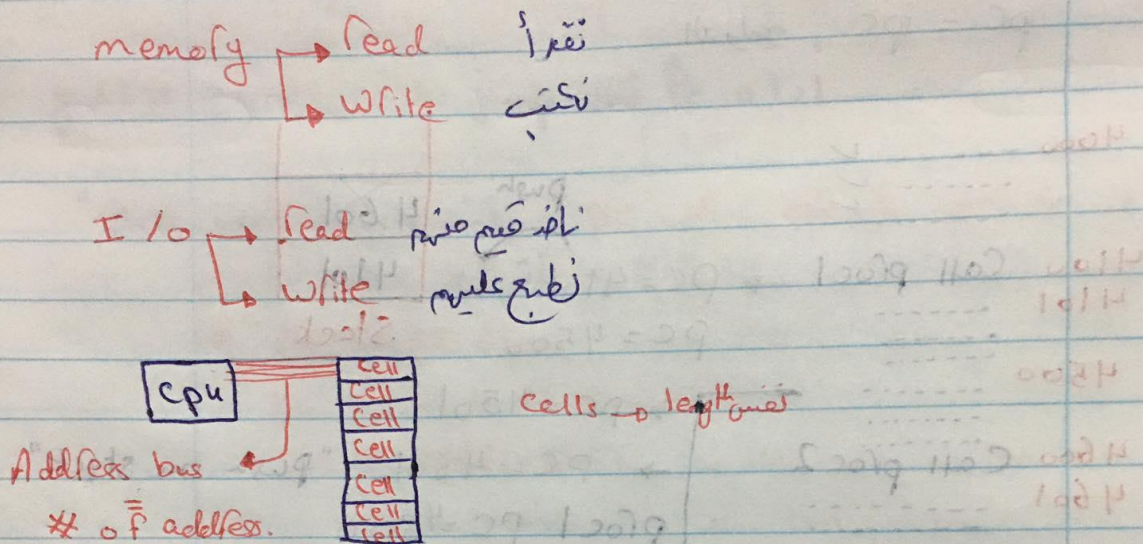 memory → read نقرأ
→ write نكتب
I/O → read ناخذ قيم منهم
→ write نطبع عليهم
cpu
cell
cell
cell
cell
cell
cell
cell
cells → length نفس
Address bus
# of address.